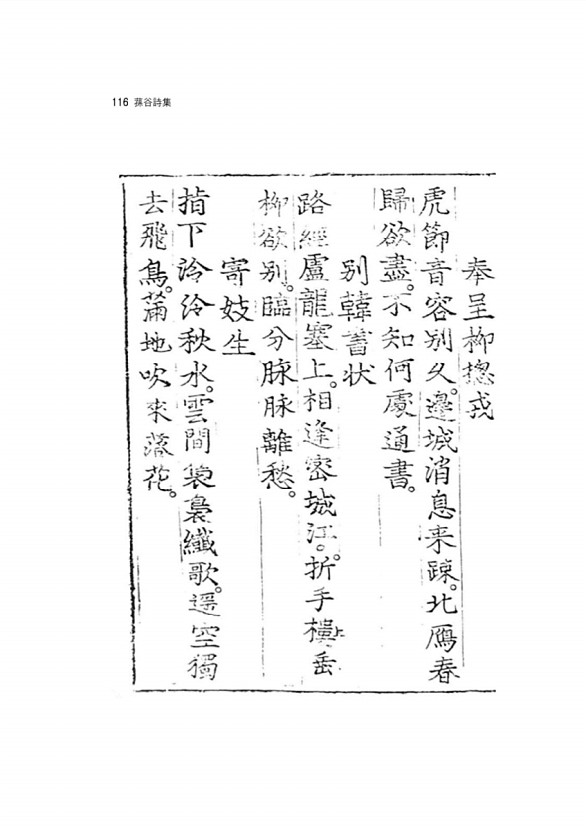 116 蓀谷詩集
奉呈柳摠戎
虎節音容別久。邊城消息来踈。北鴈春
歸欲盡。不知何處通書。
別韓書状
路經盧龍塞上。相逢密城江。折手樓上垂
柳欲別。臨分脉脉離愁。
寄妓生
指下泠泠秋水。雲間裊裊纖歌。遥空獨
去飛鳥。滿地吹来落花。